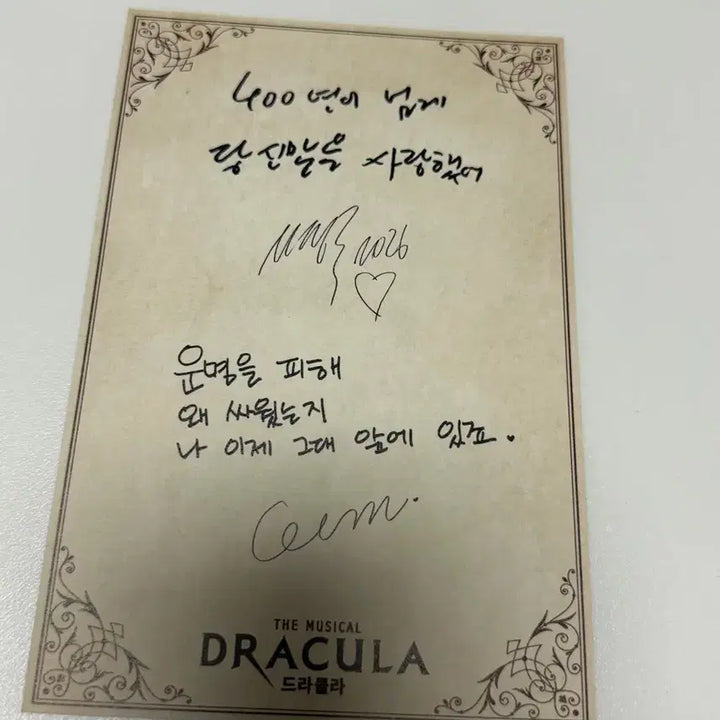 400년이 넘게
당신만을 사랑했어
2026
운명을 피해
왜 싸웠는지
나 이제 그대 앞에 있죠.
THE MUSICAL
DRACULA
드라큘라